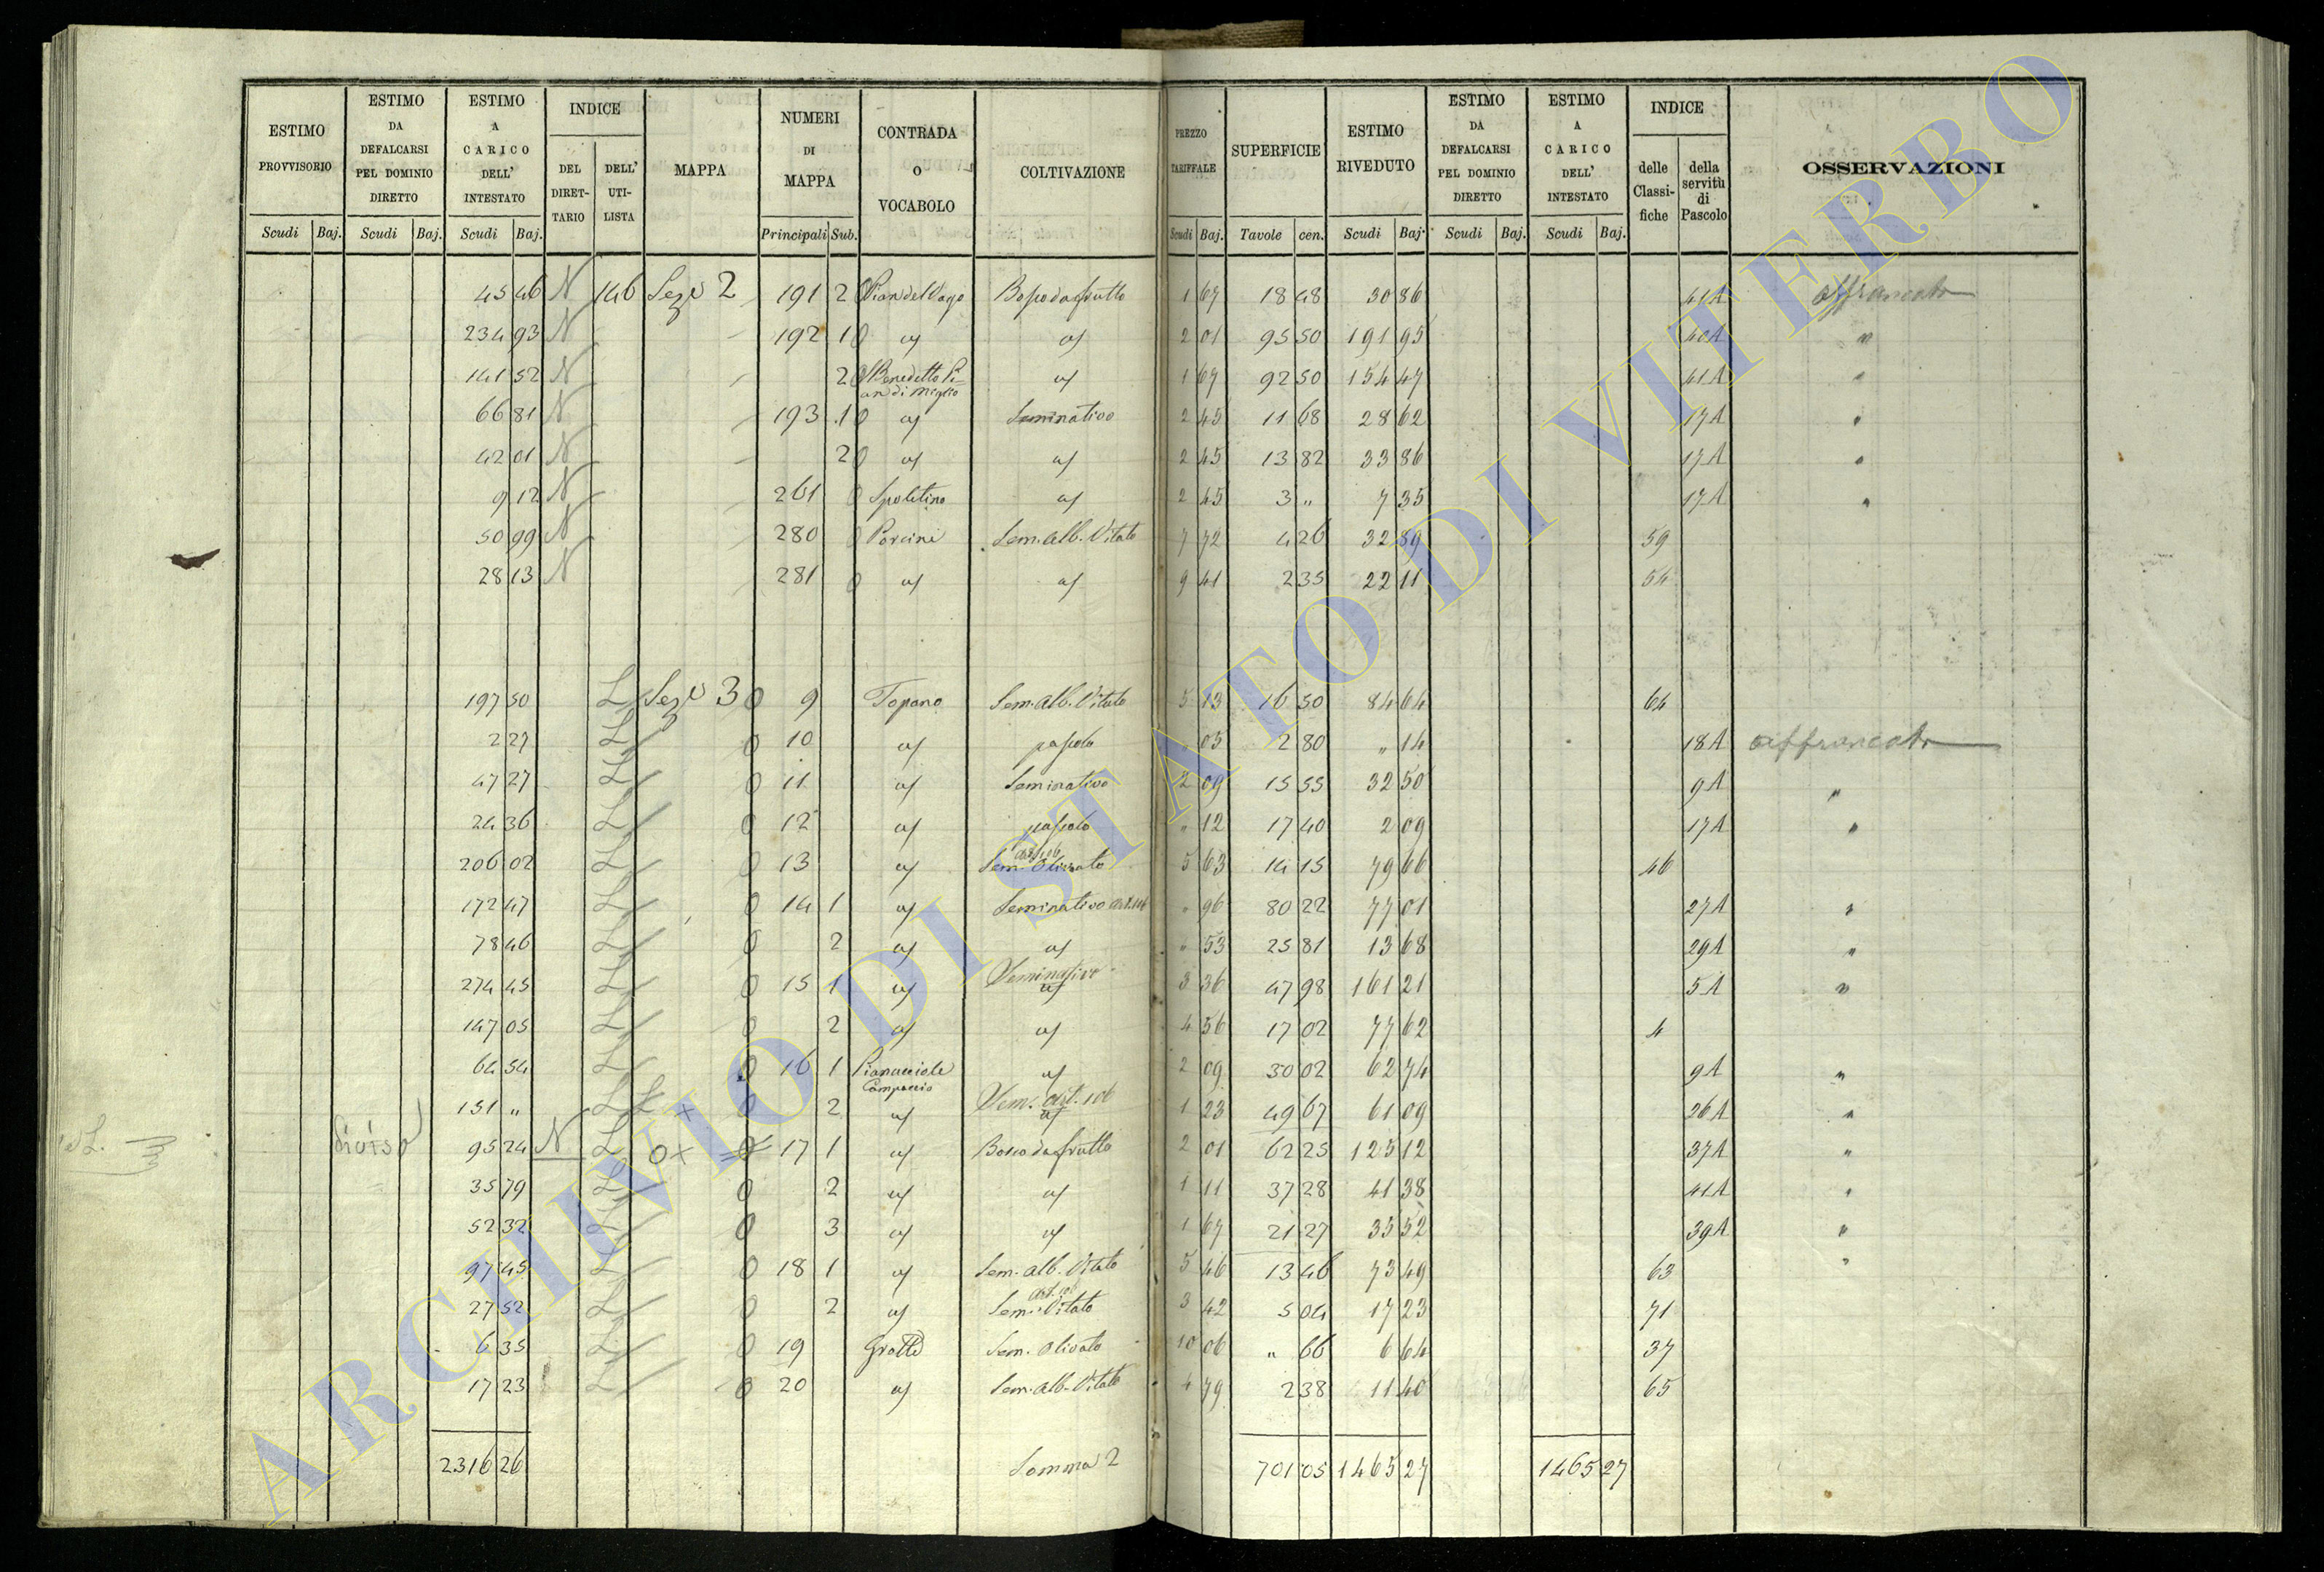 ESTIMO PROVVISORIO | ESTIMO DA DEFALCARSI PEL DOMINIO DIRETTO | ESTIMO A CARICO DELL' INTESTATO | INDICE DEL DIRETTARIO | DELL' UTILISTA | MAPPA | NUMERI DI MAPPA | CONTRADA O VOCABOLO | COLTIVAZIONE | PREZZO TARIFFALE | SUPERFICIE | ESTIMO RIVEDUTO | ESTIMO DA DEFALCARSI PEL DOMINIO DIRETTO | ESTIMO A CARICO DELL' INTESTATO | INDICE delle Classifiche | della servitù di Pascolo | OSSERVAZIONI
Scudi Baj. Scudi Baj. Scudi Baj. Principali Sub. Scudi Baj. Tavole cen. Scudi Baj. Scudi Baj. Scudi Baj.
45 46 N 146 Sez. 2 191 2 0 Pian del Vago Bosco da frutto 1 67 18 48 30 86 41A affrancato
234 93 N 192 1 0 a/ a/ 2 01 95 50 191 95 40A "
141 52 N 2 0 Benedetto Pian di Miglio a/ 1 67 92 50 154 47 41A "
66 81 N 193 1 0 a/ Seminativo 2 45 11 68 28 62 17A "
42 01 N 2 0 a/ a/ 2 45 13 82 33 86 17A "
9 12 N 261 0 Spoletino a/ 2 45 3 " 7 35 17A "
50 99 N 280 0 Porcini Sem. alb. Vitato 7 72 4 26 32 89 59
28 13 N 281 0 a/ a/ 9 41 2 35 22 11 54
197 50 L Sez. 3 0 9 Topano Sem. Alb. Vitato 5 13 16 50 84 64 64
2 27 L 0 10 a/ pascolo " 05 2 80 " 14 18A affrancato
47 27 L 0 11 a/ Seminativo 2 09 15 55 32 50 9A "
24 36 L 0 12 a/ pascolo " 12 17 40 2 09 17A "
206 02 L 0 13 a/ Sem. Olivato art. 106 5 63 14 15 79 66 46
172 47 L 0 14 1 a/ Seminativo art. 106 " 96 80 22 77 01 27A "
78 46 L 0 2 a/ a/ " 53 25 81 13 68 29A "
274 45 L 0 15 1 a/ Seminativo a/ 3 36 47 98 161 21 5A "
147 05 L 0 2 a/ a/ 4 56 17 02 77 62 4
64 54 L 0 16 1 Pianacciole Campaccio a/ 2 09 30 02 62 74 9A "
151 " L L x 0 2 a/ Sem. art. 106 a/ 1 23 49 67 61 09 26A "
diviso 95 24 N L 0x 0 17 1 a/ Bosco da frutto 2 01 62 25 125 12 37A "
35 79 L 0 2 a/ a/ 1 11 37 28 41 38 41A "
52 32 L 0 3 a/ a/ 1 67 21 27 35 52 39A "
97 45 L 0 18 1 a/ Sem. alb. Vitato 5 46 13 46 73 49 63 "
27 52 L 0 2 a/ Sem. Vitato art. 106 3 42 5 04 17 23 71
6 35 L 0 19 Grotte Sem. Olivato 10 06 " 66 6 64 37
17 23 L 0 20 a/ Sem. alb. Vitato 4 79 2 38 11 40 65
2316 26 Somma 2 701 05 1465 27 1465 27
ARCHIVIO DI STATO DI VITERBO